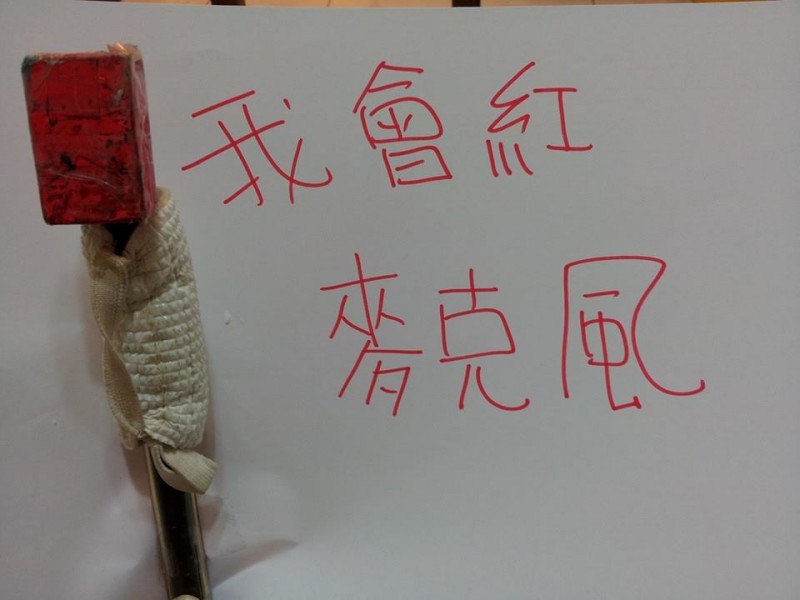 我會紅
麥克風